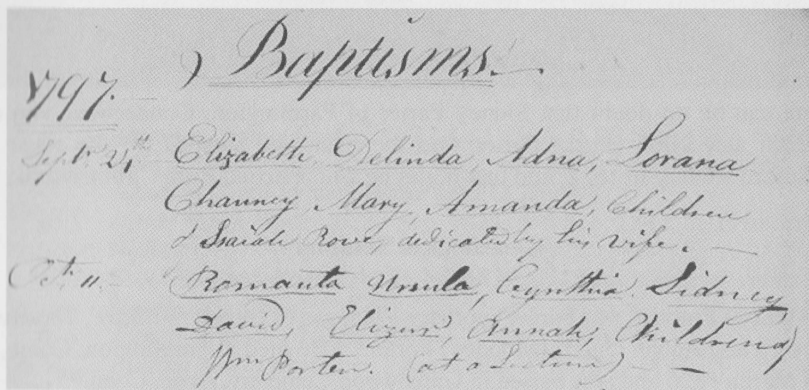 Baptisms.
1797.
Septr. 24th Elizabeth, Delinda, Adna, Lorana
Chauncy Mary, Amanda, Children
of Isaiah Rowe, dedicated by his wife.
Oct. 11. Romanta Ursula, Cynthia. Sidney
David, Elizur, Annah, Children of
Wm Porter. (at a Lecture)